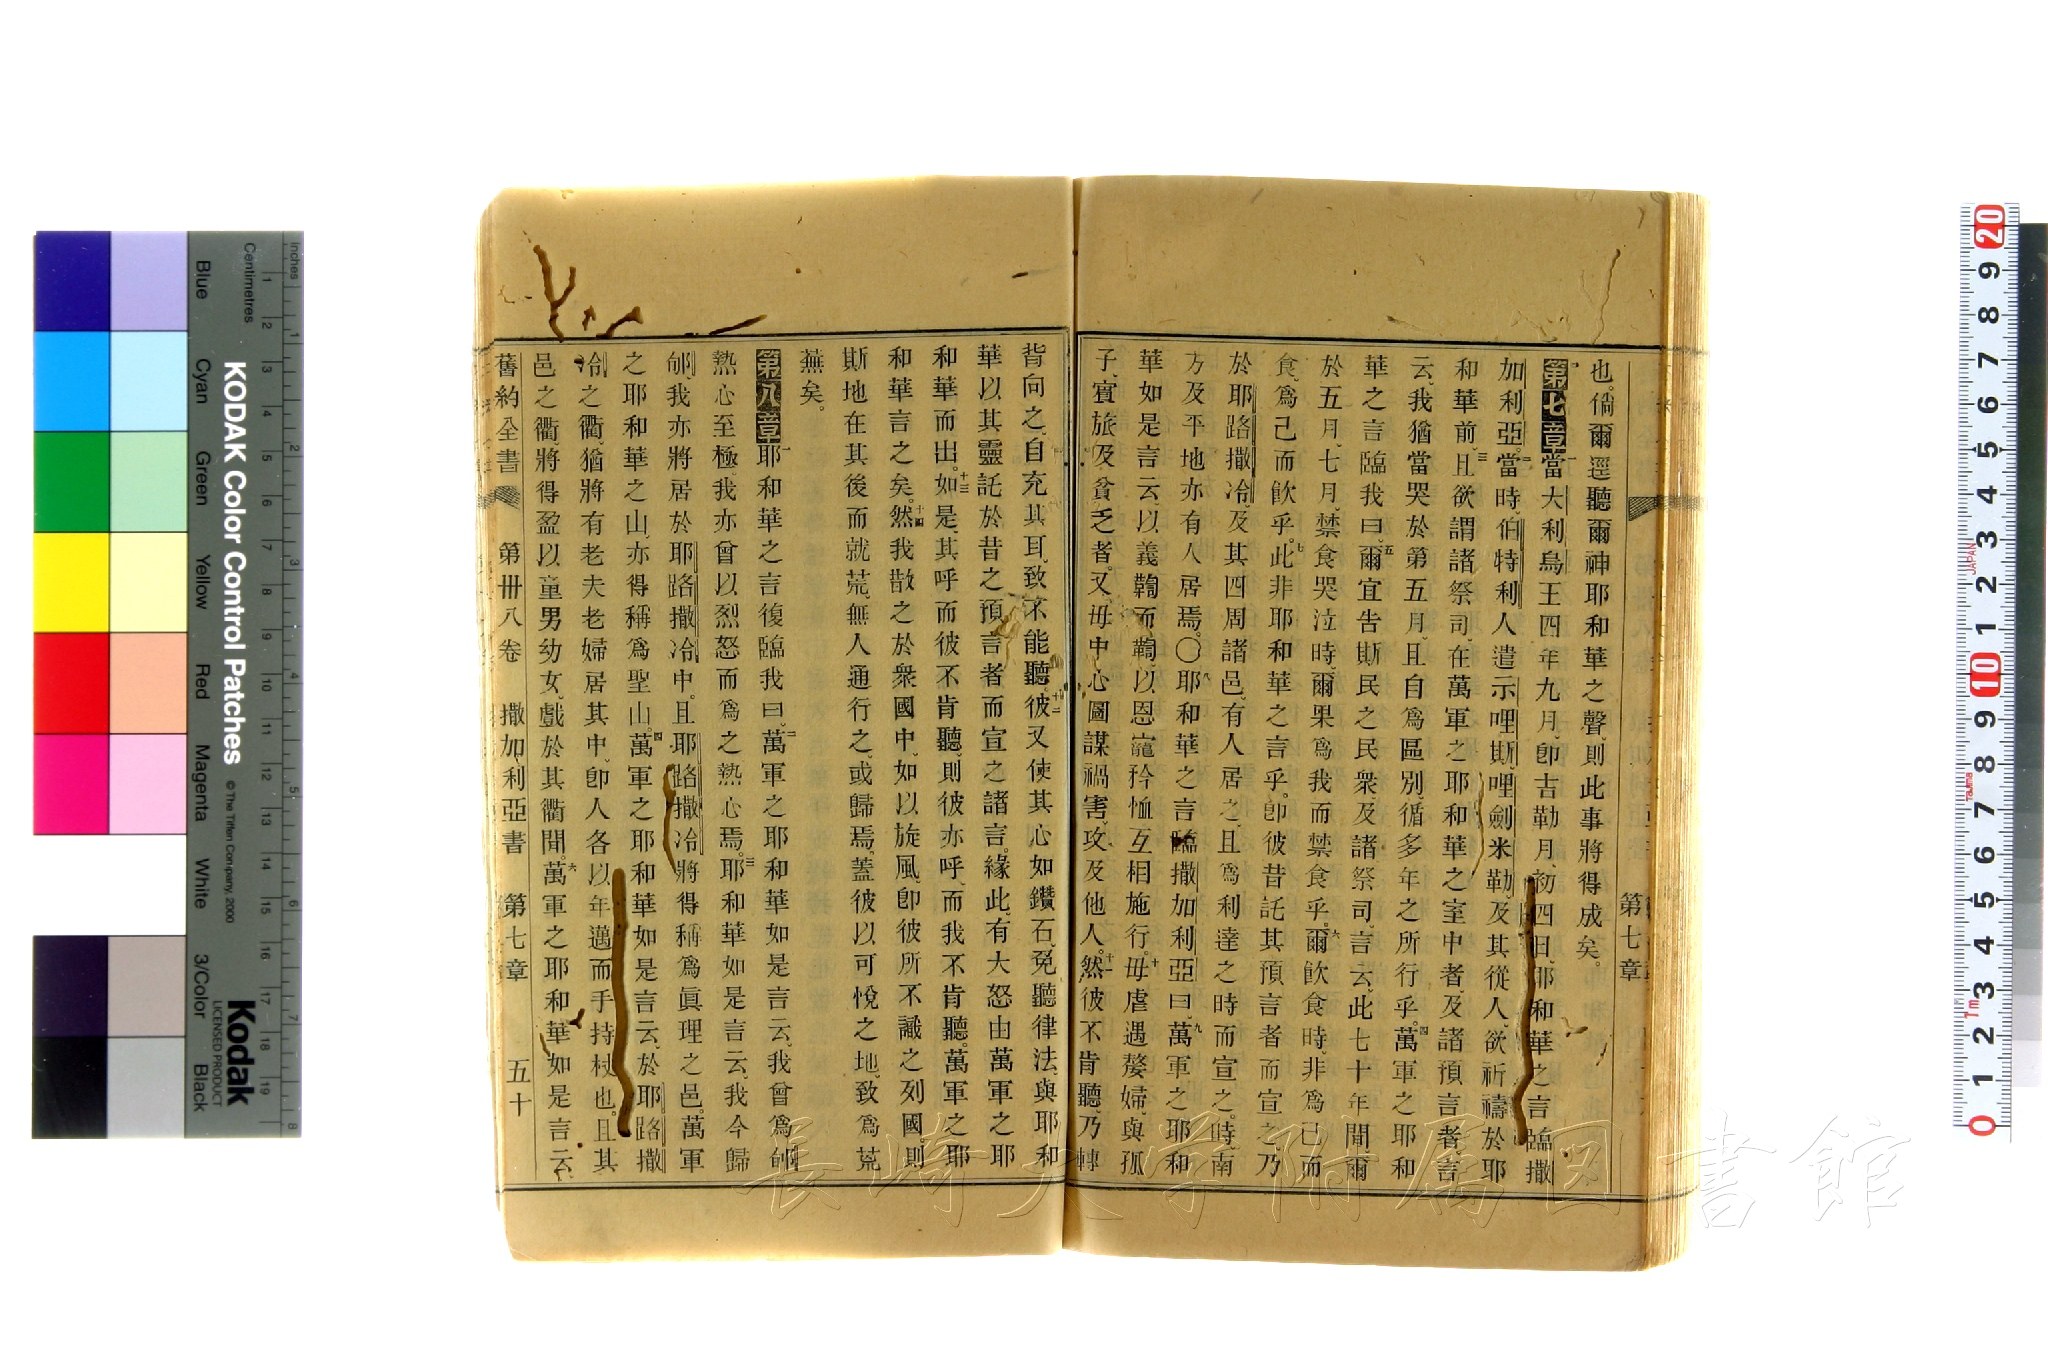 第七章
也。倘爾逕聽爾神耶和華之聲、則此事將得成矣。
第七章一當大利烏王四年九月、卽吉勒月、初四日、耶和華之言臨撒
加利亞。二當時、伯特利人遣示哩斯、哩劍米勒、及其從人、欲祈禱於耶
和華前、三且欲謂諸祭司、在萬軍之耶和華之室中者、及諸預言者言
云、我猶當哭於第五月、且自爲區別、循多年之所行乎。四萬軍之耶和
華之言臨我曰、五爾宜告斯民之民衆、及諸祭司、言云、此七十年間、爾
於五月、七月、禁食哭泣時、爾果爲我而禁食乎。六爾飮食時、非爲己而
食、爲己而飮乎。七此非耶和華之言乎。卽彼昔託其預言者而宣之、乃
於耶路撒冷、及其四周諸邑、有人居之、且爲利達之時而宣之。時、南
方及平地亦有人居焉。〇八耶和華之言臨撒加利亞曰、九萬軍之耶和
華如是言云、以義鞫而鞫、以恩寵矜恤互相施行。十毋虐遇嫠婦、與孤
子、賓旅、及貧乏者。又毋中心圖謀禍害、攻及他人。十一然彼不肯聽、乃轉
背向之、自充其耳、致不能聽。十二彼又使其心如鑽石、免聽律法、與耶和
華以其靈託於昔之預言者而宣之諸言。緣此有大怒由萬軍之耶
和華而出。十三如是、其呼而彼不肯聽、則彼亦呼、而我不肯聽。萬軍之耶
和華言之矣。十四然我散之於衆國中、如以旋風、卽彼所不識之列國、則
斯地在其後而就荒、無人通行之、或歸焉、蓋彼以可悅之地、致爲荒
蕪矣。
第八章一耶和華之言復臨我曰、二萬軍之耶和華如是言云、我曾爲郇
熱心至極、我亦曾以烈怒而爲之熱心焉。三耶和華如是言云、我今歸
郇、我亦將居於耶路撒冷中。且耶路撒冷將得稱爲眞理之邑。萬軍
之耶和華之山、亦得稱爲聖山。四萬軍之耶和華如是言云、於耶路撒
冷之衢、猶將有老夫老婦居其中、卽人各以年邁而手持杖也。且其
邑之衢、將得盈以童男幼女、戲於其衢間。六萬軍之耶和華如是言云、
舊約全書 第卅八卷 撒加利亞書 第七章 五十
長崎大学附属図書館
KODAK Color Control Patches
© The Tiffen Company, 2000
Kodak
LICENSED PRODUCT
Inches
Centimetres
Blue
Cyan
Green
Yellow
Red
Magenta
White
3/Color
Black